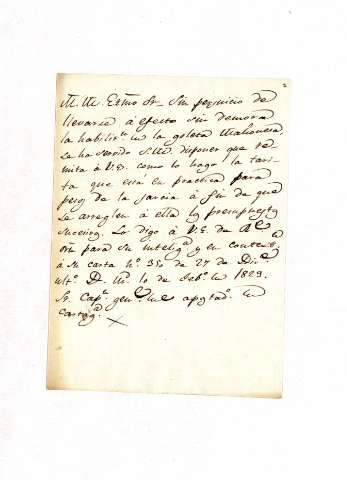 2
M. M. Exmo Sr_ Sin perjuicio de
llevarse á efecto sin demora
la habilitn. de la goleta Mahonesa,
se ha servido S.M. disponer que re
mita á V.E. como lo hago la tari-
fa que está en practica para
peso de la jarcia á fin de que
se arreglen á ella los presupuestos
sucesivos. Lo digo á V.E. de Rl.
orn para su intelig.a y en contesn.
á su carta no. 350 de 27 de Dice.
ulto. D. 10 de Feb.o de 1829.
Sr. Capn. genl. del apostado. de
Cartaga.